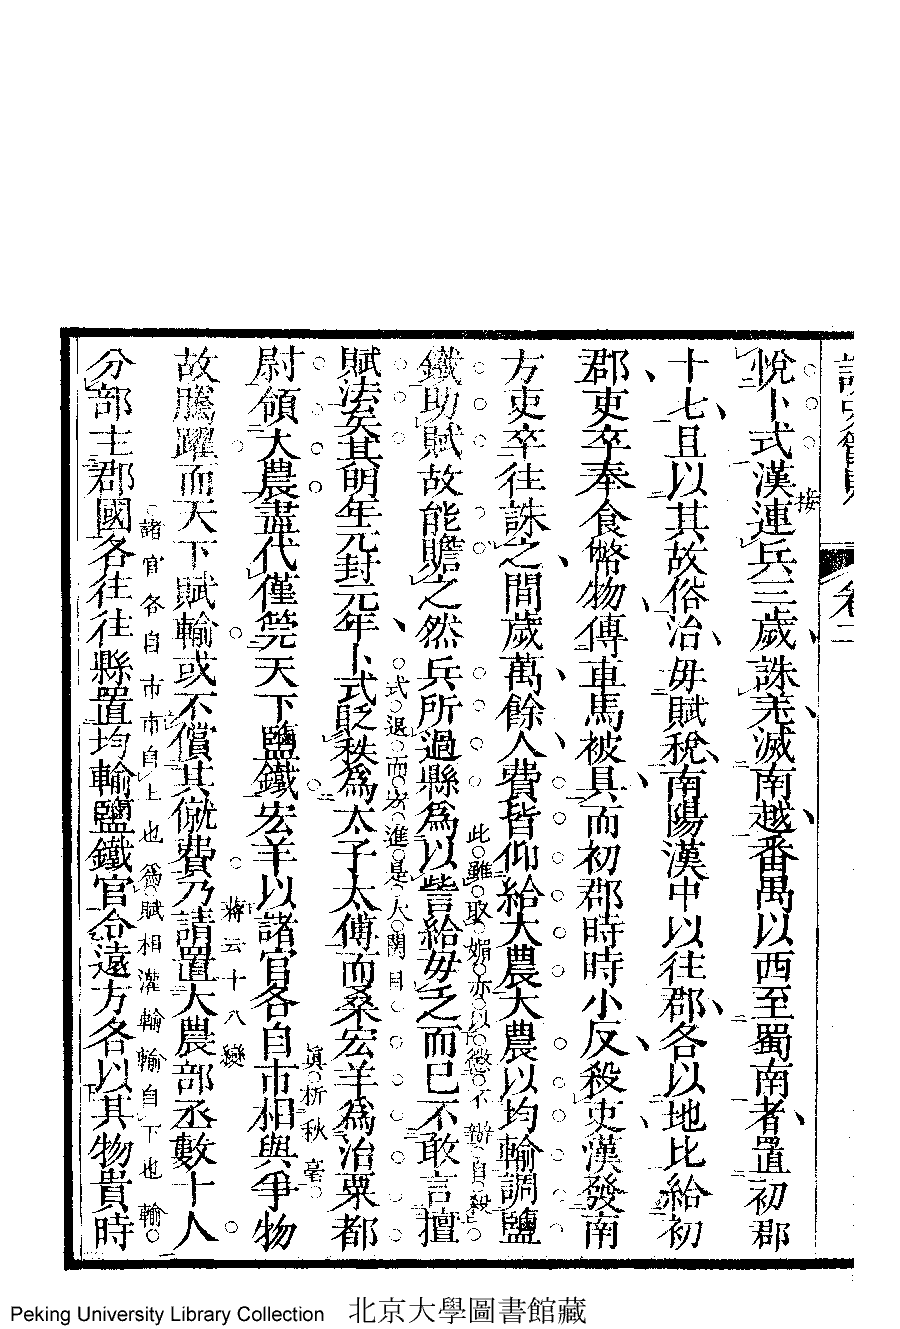 卷二
悅卜式漢連兵三歲誅羌滅南越番禺以西至蜀南者置初郡
接
十七且以其故俗治毋賦稅南陽漢中以往郡各以地比給初
郡吏卒奉食幣物傳車馬被具而初郡時時小反殺吏漢發南
方吏卒往誅之間歲萬餘人費皆仰給大農大農以均輸調鹽
鐵助賦故能贍之然兵所過縣爲以訾給毋乏而已不敢言擅
此雖取媚亦以懲不辦自殺
賦法矣其明年元封元年卜式貶秩爲太子太傅而桑宏羊爲治粟都
式退而宏進是大關目
尉領大農盡代僅筦天下鹽鐵宏羊以諸官各自市相與爭物
眞析秋毫
故騰躍而天下賦輸或不償其僦費乃請置大農部丞數十人
蔣云十八變
分部主郡國各往往縣置均輸鹽鐵官令遠方各以其物貴時
諸官各自市市自上也爲賦相灌輸輸自下也輸
Peking University Library Collection 北京大學圖書館藏